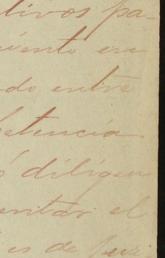 tivos pa-
viento en
do entre
petencia
diligen
entar el
es de